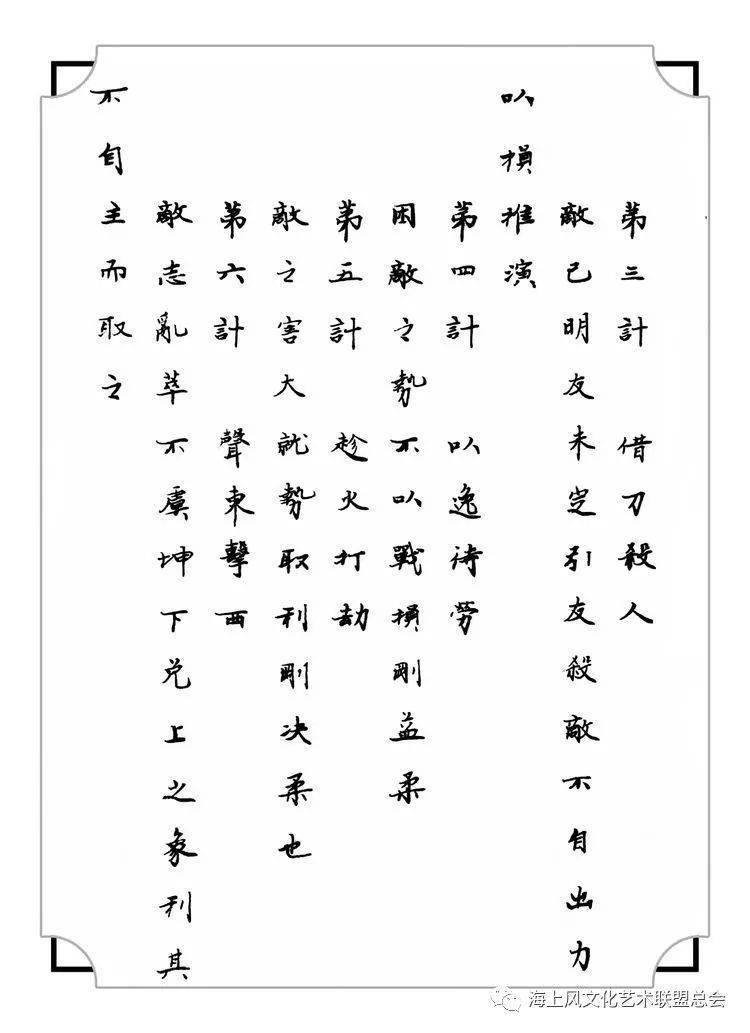 第三計 借刀殺人
敵已明友未定引友殺敵不自出力
以損推演
第四計 以逸待勞
困敵之勢不以戰損剛益柔
第五計 趁火打劫
敵之害大就勢取利剛決柔也
第六計 聲東擊西
敵志亂萃不虞坤下兌上之象利其
不自主而取之
海上风文化艺术联盟总会